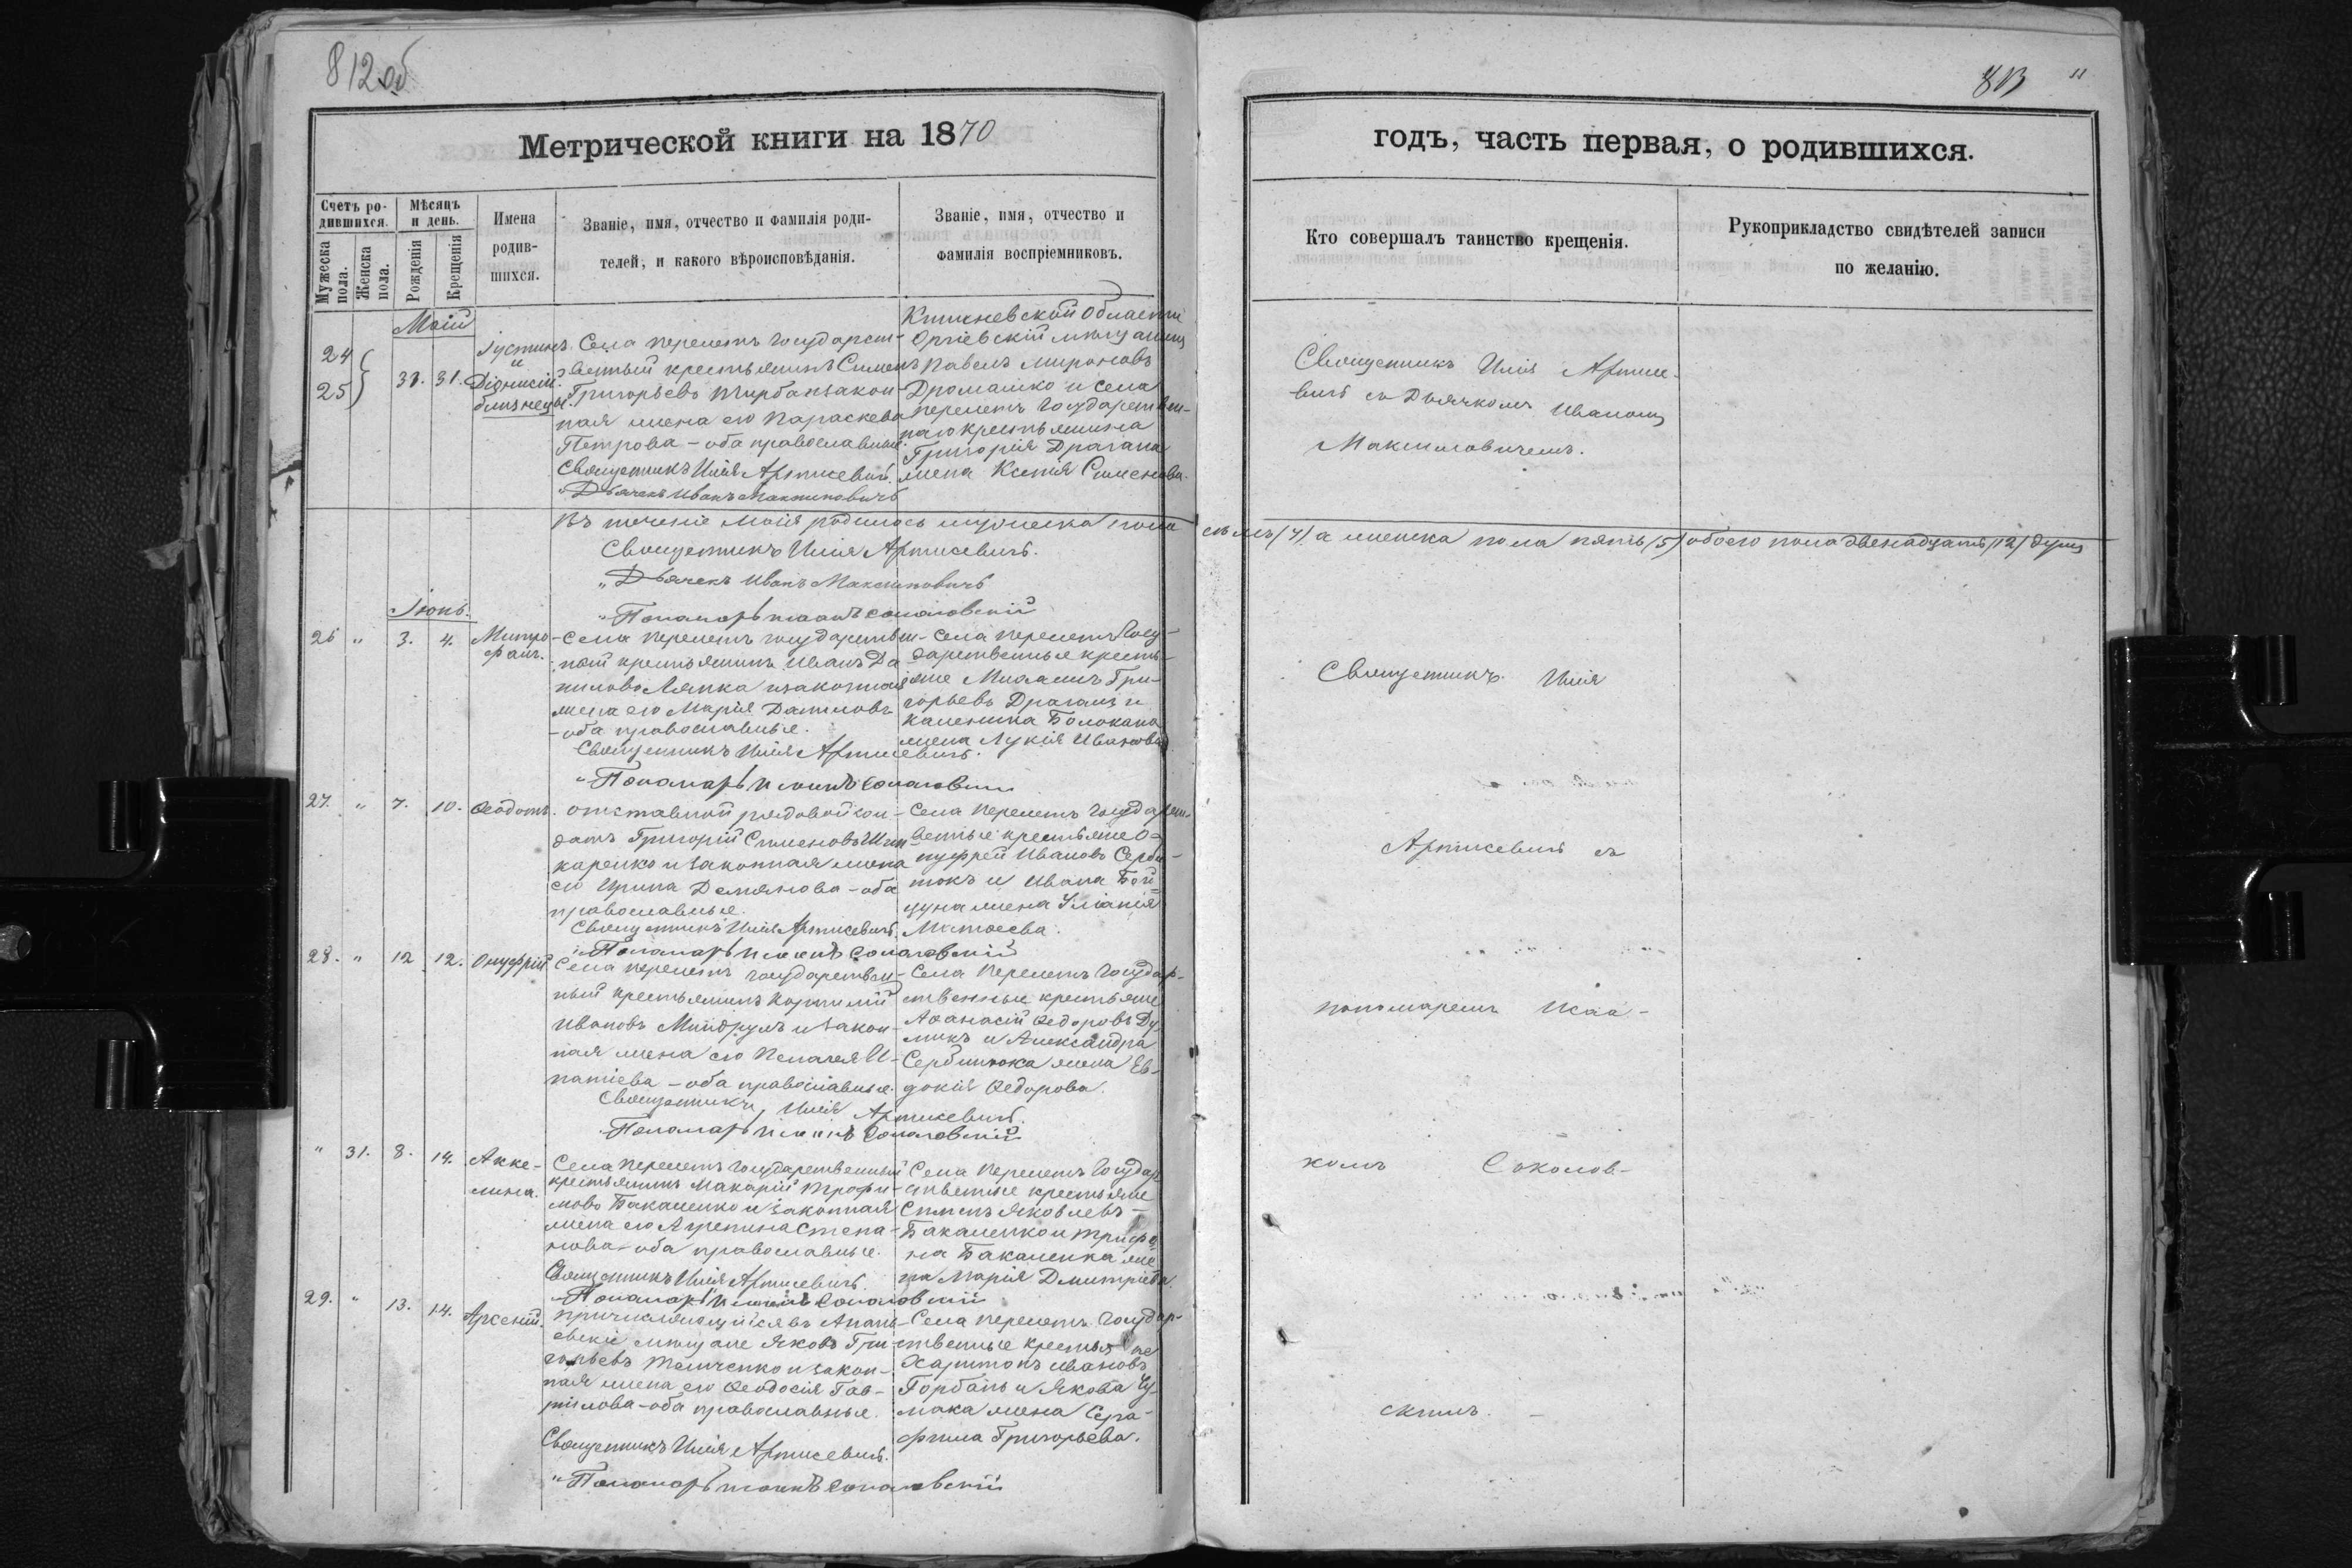 812об
Метрической книги на 1870
Счетъ ро-
дившихся.
Мѣсяцъ
и день.
Мужеска
пола.
Женска
пола.
Рожденія
Крещенія
Имена
родив-
шихся.
Званіе, имя, отчество и фамилія роди-
телей, и какого вѣроисповѣданія.
Званіе, имя, отчество и
фамилія воспріемниковъ.
Маій
24
25
31. 31.
Іустинъ
и
Діонисій
близнецы.
Села Перелетъ государст-
венный крестьянинъ Симеонъ
Григорьевъ и закон-
ная жена его Параскева
Петрова - оба православные.
Священникъ Илія Артисевичъ.
"Дьячекъ Иванъ Максимовичъ
Кишневской Области
Оргіевскій мѣщанинъ
Павелъ Мироновъ
Дромашко и села
Перелетъ государствен-
наго крестьянина
Григорія Драгана
жена Ксенія Симеонова.
Въ теченіе Маія родилось мужеска пола
Священникъ Илія Артисевичъ.
"Дьячекъ Иванъ Максимовичъ
"Пономарь Исаакъ Соколовскій
Іюнь.
26 " 3. 4. Митро-
фанъ.
Села Перелетъ государствен-
ный крестьянинъ Иванъ Да-
ниловъ Ляпка и законная
жена его Марія Данилова
- оба православные.
Священникъ Илія Артисевичъ.
"Пономарь Исаакъ Соколовскій
Села Перелетъ Госу-
дарственные кресть-
яне Михаилъ Гри-
горьевъ Драганъ и
Каленика Болокана
жена Лукія Иванова
27. " 7. 10. Ѳеодотъ.
Отставной рядовой сол-
датъ Григорій Симеоновъ
и законная жена
его Ирина Демянова - оба
православные.
Священникъ Илія Артисевичъ.
"Пономарь Исаакъ Соколовскій
Села Перелетъ Государст-
венные крестьяне О-
нуфрей Ивановъ Серби-
токъ и Ивана
жена Уліанія
Матѳеева.
28. " 12 12. Онуфрій.
Села Перелетъ государствен-
ный крестьянинъ Корнилій
Ивановъ Миндрулъ и закон-
ная жена его Пелагея И-
патіева - оба православные.
Священникъ Илія Артисевичъ.
"Пономарь Исаакъ Соколовскій
Села Перелетъ Государ-
ственные крестьяне
Аѳанасій Ѳедоровъ Ду-
микъ и Александра
Сербинюка жена Ев-
докія Ѳедорова.
" 31. 8. 14. Акке-
лина.
Села Перелетъ государственный
крестьянинъ Макарій Трофи-
мовъ Бакаленко и законная
жена его Агрепина Степа-
нова - оба православные.
Священникъ Илія Артисевичъ
"Пономарь Исаакъ Соколовскій
Села Перелетъ Государ
ственные крестьяне
Симеонъ Яковлевъ
Бакаленко и Трифо-
на Бакаленка же-
на Марія Дмитріева.
29. " 13. 14. Арсеній.
Причисляющійся въ Анань-
евскіе мѣщане Яковъ Гри-
горьевъ Темченко и закон-
ная жена его Ѳеодосія Гав-
рилова - оба православные.
Священникъ Илія Артисевичъ.
"Пономарь Исаакъ Соколовскій
Села Перелетъ Государ-
ственные крестьяне
Харитонъ Ивановъ
Горбань и Якова Чу-
мака жена Сера-
фима Григорьева.
813 "
годъ, часть первая, о родившихся.
Кто совершалъ таинство крещенія.
Рукоприкладство свидѣтелей записи
по желанію.
Священникъ Илія Артисе-
вичъ съ Дьячкомъ Иваномъ
Максимовичемъ.
семь (7) а женска пола пять (5) обоего пола двенадцать (12) душъ
Священникъ Илія
Артисевичъ съ
пономаремъ Исаа-
комъ Соколов-
скимъ. -